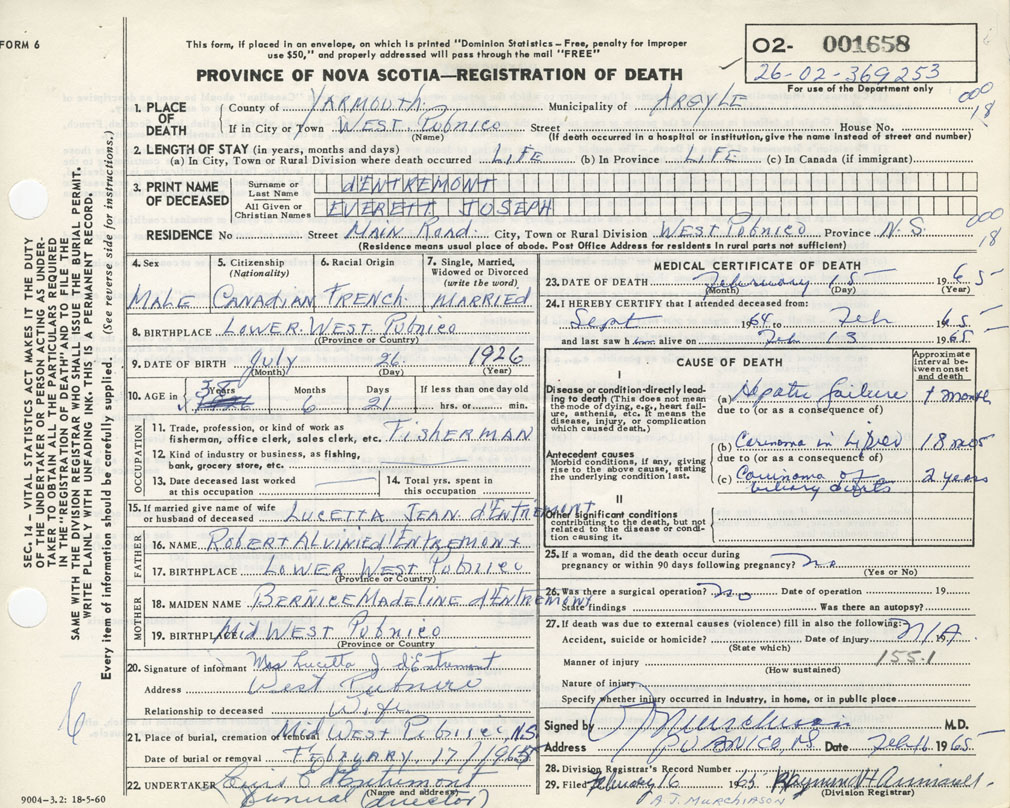 FORM 6
This form, if placed in an envelope, on which is printed "Dominion Statistics – Free, penalty for improper
use $50," and properly addressed will pass through the mail "FREE"
PROVINCE OF NOVA SCOTIA—REGISTRATION OF DEATH
02- 001658
26-02-369253
For use of the Department only
000
18
1. PLACE OF DEATH
County of YARMOUTH. Municipality of ARGYLE
If in City or Town WEST. PUBNICO Street House No.
(Name) (If death occurred in a hospital or institution, give the name instead of street and number)
2. LENGTH OF STAY (in years, months and days)
(a) In City, Town or Rural Division where death occurred LIFE (b) In Province LIFE (c) In Canada (if immigrant)
3. PRINT NAME OF DECEASED
Surname or Last Name d'ENTREMONT
All Given or Christian Names EVERETT JOSEPH
000
18
RESIDENCE No Street Main Road. City, Town or Rural Division West Pubnico Province N.S.
(Residence means usual place of abode. Post Office Address for residents in rural parts not sufficient)
4. Sex
MALE
5. Citizenship (Nationality)
Canadian
6. Racial Origin
French
7. Single, Married, Widowed or Divorced (write the word)
MARRIED
8. BIRTHPLACE LOWER. WEST Pubnico
(Province or Country)
9. DATE OF BIRTH July 26 1926
(Month) (Day) (Year)
10. AGE in Years Months Days If less than one day old
38 6 21 hrs. or min.
OCCUPATION
11. Trade, profession, or kind of work as
fisherman, office clerk, sales clerk, etc. FISHERMAN
12. Kind of industry or business, as fishing,
bank, grocery store, etc.
13. Date deceased last worked
at this occupation
14. Total yrs. spent in
this occupation
15. If married give name of wife
or husband of deceased LUCETTA JEAN. d'ENTREMONT
FATHER
16. NAME ROBERT ALVINIE d'ENTREMONT
17. BIRTHPLACE LOWER WEST Pubnico
(Province or Country)
MOTHER
18. MAIDEN NAME BERNICE MADELINE d'ENTREMONT
19. BIRTHPLACE Mid WEST Pubnico
(Province or Country)
20. Signature of informant Mrs Lucetta J. d'Entremont
Address West Pubnico
Relationship to deceased Wife
21. Place of burial, cremation or removal Mid WEST Pubnico, N.S.
Date of burial or removal FEBRUARY. 17/1965
22. UNDERTAKER d'Entremont
(Name and address)
Funeral (director)
9004–3.2: 18-5-60
MEDICAL CERTIFICATE OF DEATH
23. DATE OF DEATH February 15 1965
(Month) (Day) (Year)
24. I HEREBY CERTIFY that I attended deceased from:
Sept 1964 to Feb 1965
and last saw him alive on Feb 13 1965
CAUSE OF DEATH
Approximate interval between onset and death
I
Disease or condition directly leading to death (This does not mean the mode of dying, e.g., heart failure, asthenia, etc. It means the disease, injury, or complication which caused death.)
(a) Hepatic failure 1 month
due to (or as a consequence of)
Antecedent causes
Morbid conditions, if any, giving rise to the above cause, stating the underlying condition last.
(b) Carcinoma in Liver 18 mos
due to (or as a consequence of)
(c) Carcinoma of biliary ducts 2 years
II
Other significant conditions
contributing to the death, but not related to the disease or condition causing it.
25. If a woman, did the death occur during
pregnancy or within 90 days following pregnancy? no
(Yes or No)
26. Was there a surgical operation? no Date of operation 19
State findings Was there an autopsy?
27. If death was due to external causes (violence) fill in also the following:
Accident, suicide or homicide? Date of injury N/A
(State which)
155.1
Manner of injury
(How sustained)
Nature of injury
Specify whether injury occurred in industry, in home, or in public place
Signed by Murchison M.D.
Address PUBNICO, NS Date Feb 16 1965
28. Division Registrar's Record Number
29. Filed February 16 1965 Raymond H Amirault
(Division Registrar)
A.J. MURCHISON
SEC. 14 – VITAL STATISTICS ACT MAKES IT THE DUTY
OF THE UNDERTAKER OR PERSON ACTING AS UNDER-
TAKER TO OBTAIN ALL THE PARTICULARS REQUIRED
IN THE "REGISTRATION OF DEATH" AND TO FILE THE
SAME WITH THE DIVISION REGISTRAR WHO SHALL ISSUE THE BURIAL PERMIT.
WRITE PLAINLY WITH UNFADING INK. THIS IS A PERMANENT RECORD.
Every item of information should be carefully supplied. (See reverse side for instructions.)